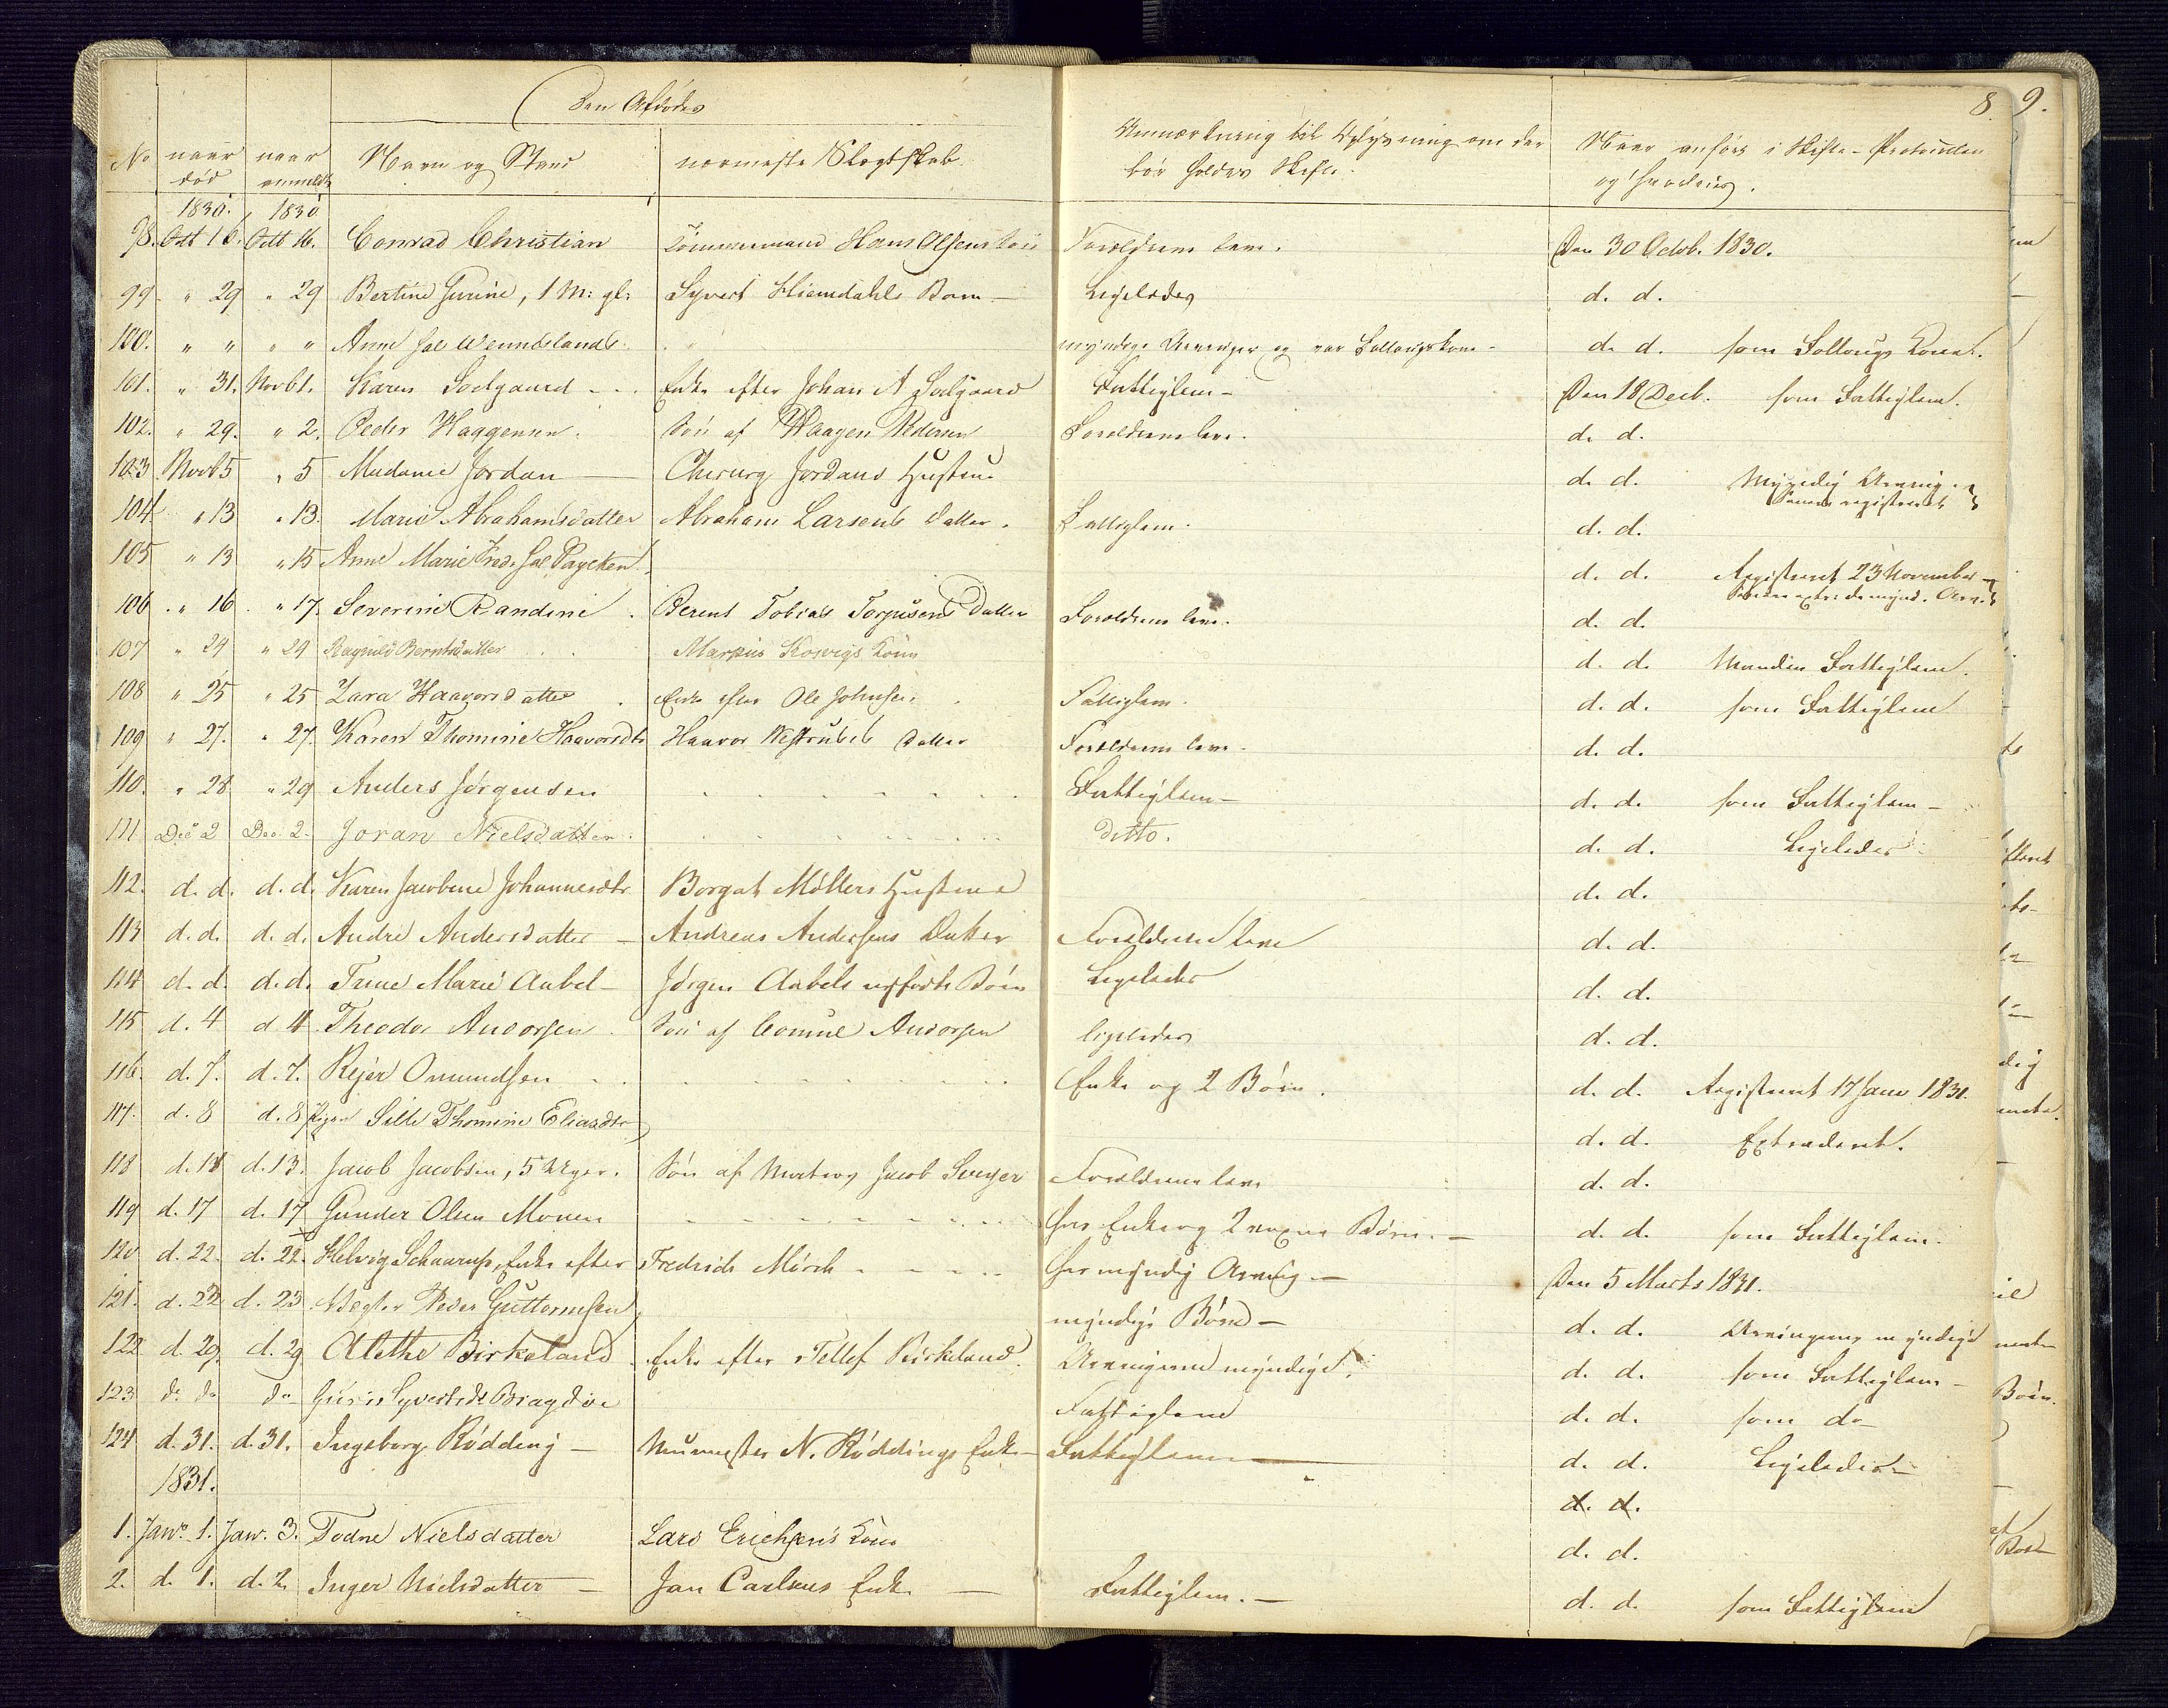 Den Afdødes
8.
9.
No naar død naar anmeldt Navn og Stand nærmeste Slægtskab. Anmærkning til Oplysning om der bør holdes Skifte. Naar anført i Skifte-Protocollen og hvorledes.
1830. 1830
98. Oct 16. Octb 16. Conrad Christian Tømmermand Hans Olsens Søn Forældrene leve. Den 30 Octob. 1830.
99. " 29 " 29 Bertine Gurine, 1 M: gl: Syvert Hiemdahls Barn - Ligeledes d. d.
100. " " " " Anne sal Wennesland myndige Arvinger og var Fattig d. d. som Fattig
101. " 31. Novb 1. Karen Sodgaard - Enke efter Johan A Sodgaard Fattiglem - Den 18 Decb. som Fattiglem.
102. " 29. " 2. Peder Haagensen. Søn af Haagen Pedersen Forældrene leve. d. d.
103 Novb 5 " 5 Madame Jordan - Chirurg Jordans Hustrue d. d. Myndig Arving. registreret
104 " 13 " 13. Marie Abrahamsdatter Abraham Larsens Datter. Fattiglem. d. d.
105 " 13 " 15 Anne Marie sal Paycken d. d. Registreret 23 November -
106. " 16 " 17. Severine Randine. Berent Tobias Torjusens Datter Forældrene leve. d. d.
107 " 24 " 24 Ragnild Berntsdatter Marxius Kosvigs Kone d. d. Manden Fattiglem.
108 " 25 " 25 Zara Haavorsdatter. Enke efter Ole Johnsen. Fattiglem. d. d. som Fattiglem
109 " 27. " 27. Karen Thomine Haavorsdtr Haavor Datter Forældrene leve. d. d.
110. " 28 " 29 Anders Jørgensen Fattiglem - d. d. som Fattiglem -
111 Dec 2 Dec. 2. Joran Nielsdatter. ditto. d. d. Ligeledes
112. d. d. d. d. Karen Jacobine Johannesdtr Borgat Møllers Hustrue d. d.
113 d. d. d. d. Andre Andersdatter - Andreas Andersens Datter Forældrene leve d. d.
114 d. d. d. d. Trine Marie Aabel - Jørgen Aabels Børn Ligeledes d. d.
115 d. 4 d 4. Theodor Andersen. Søn af Andersen ligeledes d. d.
116. d. 7. d. 7. Rejer Omundsen Enke og 2 Børn. d. d. Registreret 17 Janv 1831.
117. d. 8 d. 8 Pigen Sille Thomine Eliasdtr d. d. Extraderet.
118 d. 11 d. 13. Jacob Jacobsen, 5 Uger. Søn af Matros Jacob Forældrene leve d. d.
119 d. 17 d. 17 Gunder Olsen Mouen har Enke og 2 voxne Børn. - d. d. som Fattiglem.
120 d. 22. d. 22. Helvig Schaarup, Enke efter Fredrich Mørch har myndig Arving - Den 5 Marts 1831.
121. d. 22 d. 23 Vægter Peder Guttormsen myndige Børn - d. d. Arvingerne myndige
122 d. 29. d. 29 Alethe Birkeland - Enke efter Tellef Birkeland. Arvingerne myndige. d. d. som Fattiglem -
123 do do do Guri Syvertsd. Bragdøe Fattiglem d. d. som do
124 d. 31. d. 31. Ingeborg Rødding - Muurmester N. Røddings Enke - Fattiglem - d. d. Ligeledes -
1831. d. d.
1. Janr. 1. Janr. 3. Todne Nielsdatter Lars Erichsens Kone d. d.
2. d. 1. d. 2. Inger Nielsdatter - Jan Carlsens Enke - Fattiglem. - d. d. som Fattiglem